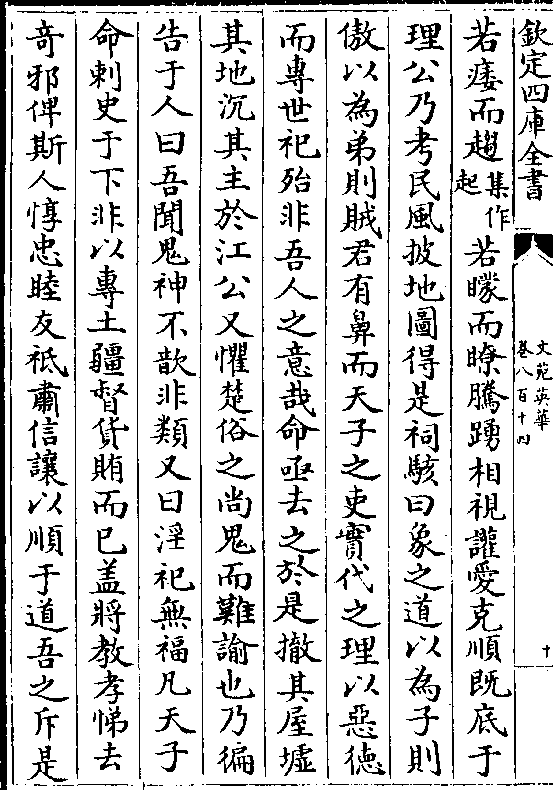 欽定四庫全書
文苑英華
卷八百十四
十
若痿而趨集作起若矇而瞭騰踴相視讙愛克順既底于
理公乃考民風披地圖得是祠駭曰象之道以為子則
傲以為弟則賊君有鼻而天子之吏實代之理以惡德
而專世祀殆非吾人之意哉命亟去之於是撤其屋墟
其地沉其主於江公又懼楚俗之尚鬼而難諭也乃徧
告于人曰吾聞鬼神不歆非類又曰淫祀無福凡天子
命刺史于下非以專土疆督貨賄而已盖將教孝悌去
竒邪俾斯人惇忠睦友祗肅信讓以順于道吾之斥是